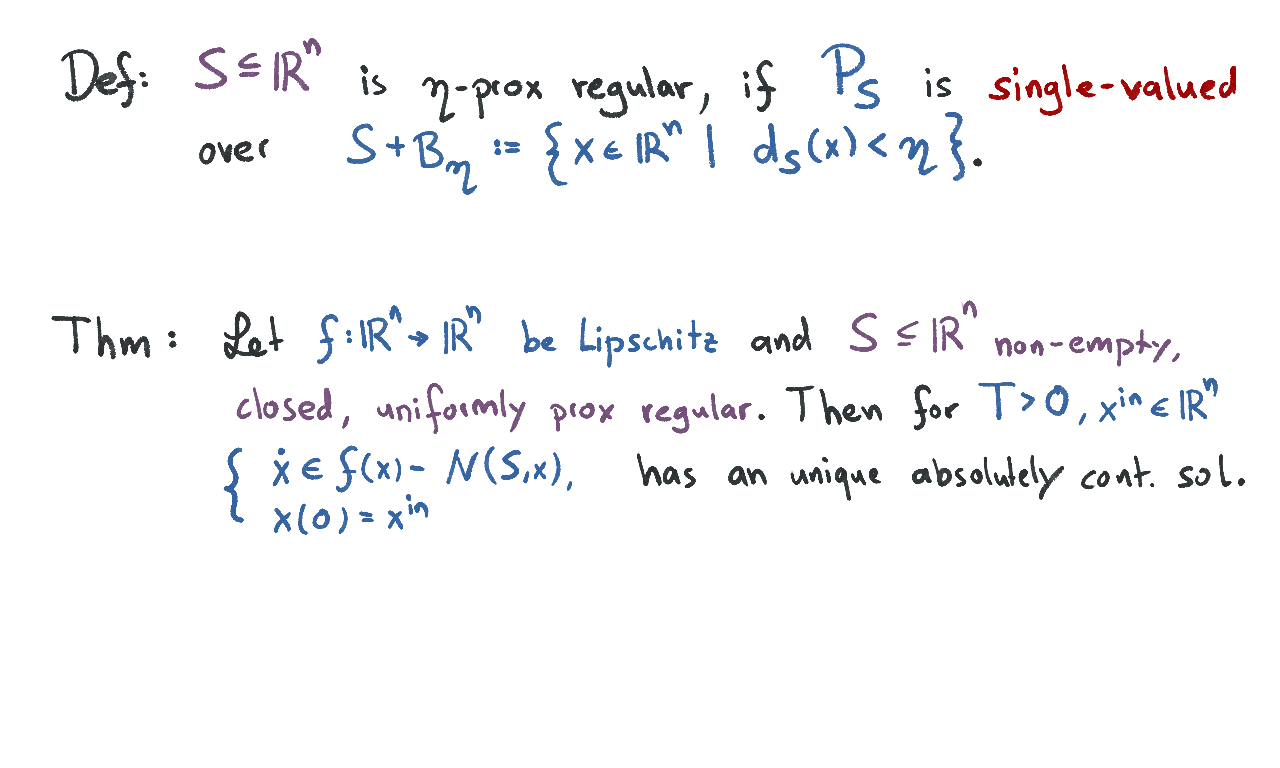 Def: S ⊆ ℝⁿ is η-prox regular, if P_S is single-valued
over S + B_η := {x ∈ ℝⁿ | d_S(x) < η}.
Thm: Let f: ℝⁿ → ℝⁿ be Lipschitz and S ⊆ ℝⁿ non-empty,
closed, uniformly prox regular. Then for T > 0, xⁱⁿ ∈ ℝⁿ
{ ẋ ∈ f(x) - N(S,x), has an unique absolutely cont. sol.
x(0) = xⁱⁿ